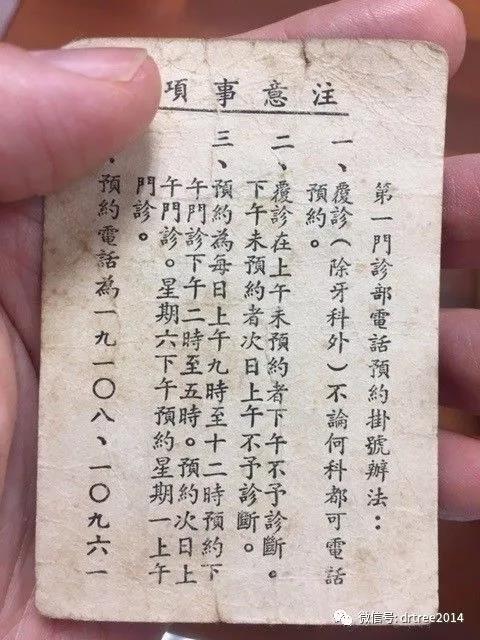 注意事項
第一門診部電話預約掛號辦法：
一、覆診（除牙科外）不論何科都可電話
預約。
二、覆診在上午未預約者下午不予診斷。
下午未預約者次日上午不予診斷。
三、預約為每日上午九時至十二時預約下
午門診下午二時至五時。預約次日上
午門診。星期六下午預約星期一上午
門診。
、預約電話為一九一〇八、一〇九六一
微信号: drtree2014